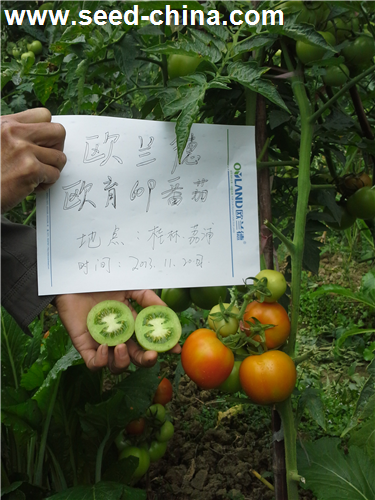 www.seed-china.com
欧兰德
欧育69番茄
地点：桂林.荔浦
时间：2013.11.20日
OULAND欧兰德